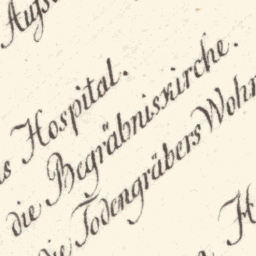 Hospital.
die Begräbniskirche.
die Todengräbers Wohn